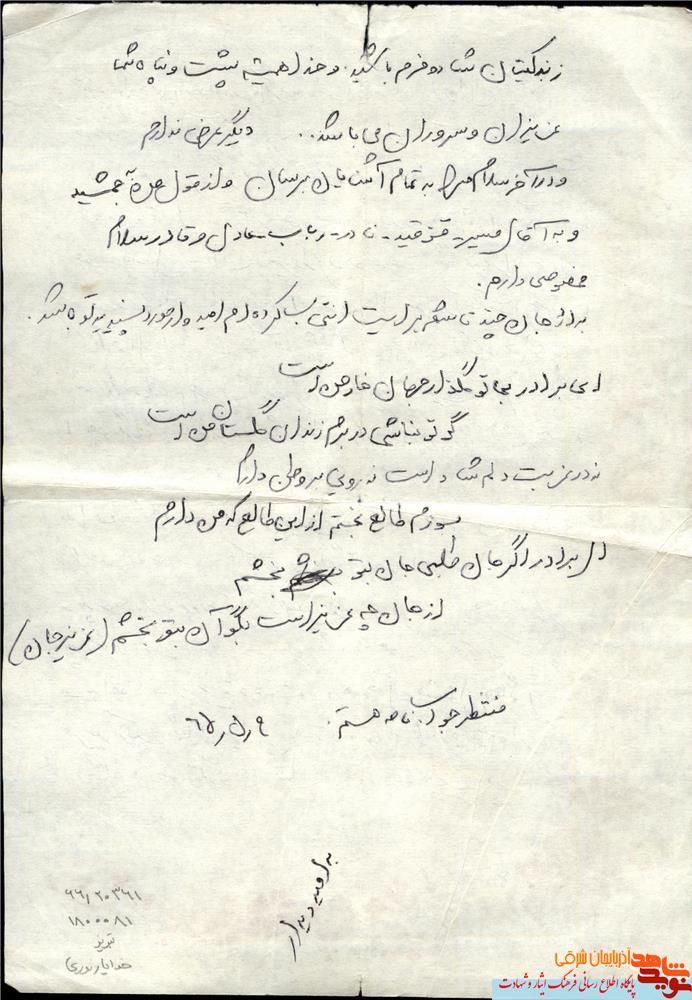 زندگیتان شاد و خرم باشید. و خدا همیشه پشت و پناه شما
عزیزان و سروران می باشد.. دیگر عرضی ندارم
و در آخر سلام مرا به تمام آشنایان برسان و از قول من به جمشید
و به آقای نادر رباب عادل و قادر سلام
مخصوصی دارم.
برادر جان چند تا شعر برایت کرده ام امید وارم مورد پسندید تو باشد.
ای برادر بی تو گلذار جهان خار من است
گر تو باشی در برم زندان گلستان من است
نه در غربت دلم شاد است نه رویی در وطن دارم
بسوزم طالع بختم از این طالع که من دارم
ای برادر اگر جان طلبی جان بتو بخشم
از جان چه عزیز است بگو آن بتو بخشم (عزیز جان)
منتظر جواب نامه هستم. ۶۵/۵/۹
به امید دیدار
۶۶/۲۰۳۶۱
۱۸۰۰۰۸۱
تبریز
خدایار نوری
نوید شاهد آذربایجان شرقی
پایگاه اطلاع رسانی فرهنگ ایثار و شهادت